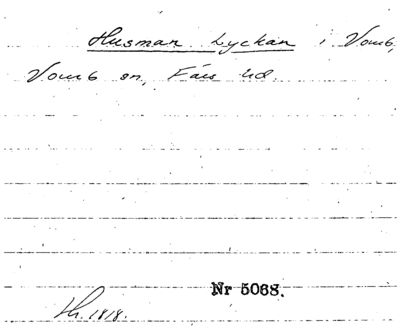 Husman Lyckan i Vomb,
Vomb sn, Färs hd.
Nr 5068.
Th. 1818.